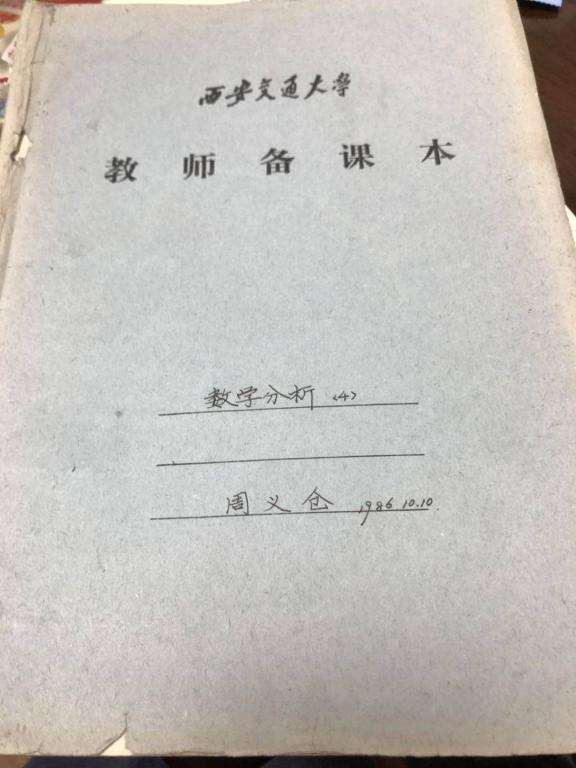 西安交通大學
教师备课本
数学分析〈4〉
周义仓 1986 10.10.